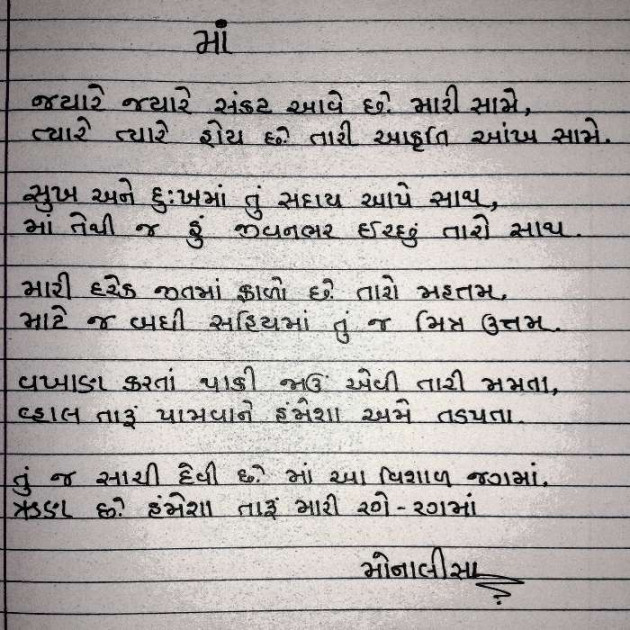 માં
જ્યારે જ્યારે સંકટ આવે છે મારી સામે,
ત્યારે ત્યારે હોય છે તારી આકૃતિ આંખ સામે.
સુખ અને દુઃખમાં તું સદાય આપે સાથ,
માં તેથી જ હું જીવનભર ઈચ્છું તારો સાથ.
મારી દરેક જીતમાં ફાળો છે તારો મહત્તમ,
માટે જ બધી સહિયમાં તું જ મિત્ર ઉત્તમ.
વખાણ કરતાં થાકી જાઉં એવી તારી મમતા,
વ્હાલ તારૂં પામવાને હંમેશા અમે તડપતા.
તું જ સાચી દેવી છે માં આ વિશાળ જગમાં,
ઋણ છે હંમેશા તારૂં મારી રગે-રગમાં
મોનાલીસા